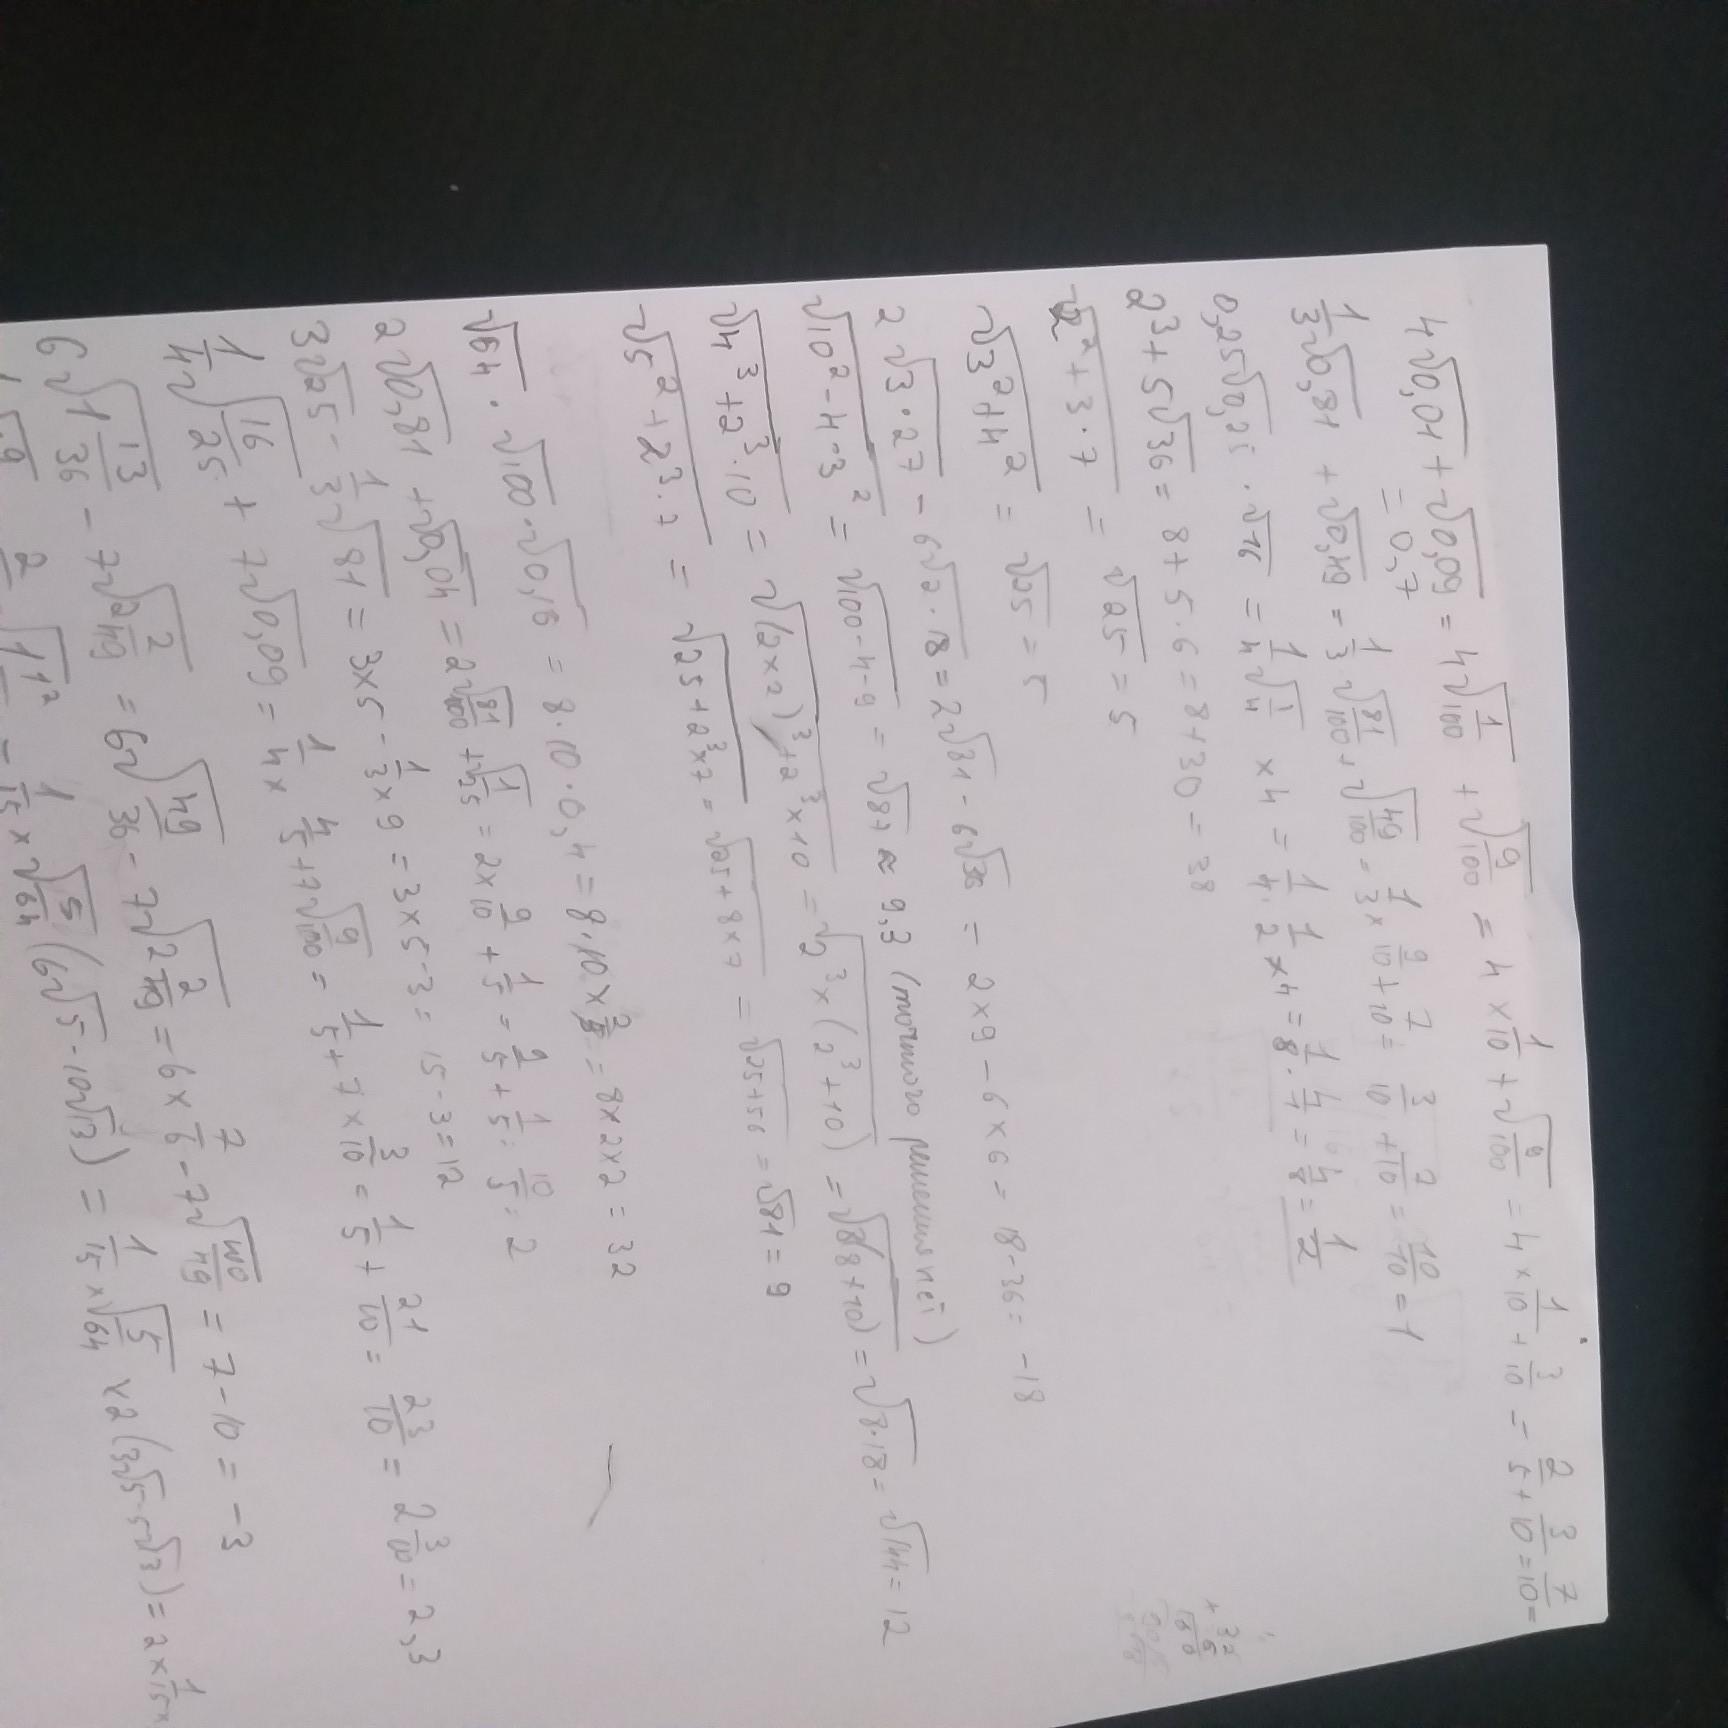 4√0,01 + √0,09 = 4√1/100 + √9/100 = 4 × 1/10 + √9/100 = 4 × 1/10 + 3/10 = 2/5 + 3/10 = 7/10 =
= 0,7
1/3√0,81 + √0,49 = 1/3 √81/100 + √49/100 = 1/3 × 9/10 + 7/10 = 3/10 + 7/10 = 10/10 = 1
0,25√0,25 · √16 = 1/4 √1/4 × 4 = 1/4 · 1/2 × 4 = 1/8 · 4/1 = 4/8 = 1/2
2³ + 5√36 = 8 + 5 · 6 = 8 + 30 = 38
√2² + 3 · 7 = √25 = 5
√3² + 4² = √25 = 5
2√3 · 27 - 6√2 · 18 = 2√81 - 6√36 = 2 × 9 - 6 × 6 = 18 - 36 = -18
√10² - 4 · 3² = √100 - 4 · 9 = √87 ≈ 9,3 (точного решения нет)
√4³ + 2³ · 10 = √(2×2)³ + 2³ × 10 = √2³ × (2³ + 10) = √8(8 + 10) = √8 · 18 = √144 = 12
√5² + 2³ · 7 = √25 + 2³ × 7 = √25 + 8 × 7 = √25 + 56 = √81 = 9
√64 · √100 · √0,16 = 8 · 10 · 0,4 = 8 · 10 × 2/5 = 8 × 2 × 2 = 32
2√0,81 + √0,04 = 2√81/100 + √1/25 = 2 × 9/10 + 1/5 = 9/5 + 1/5 = 10/5 = 2
3√25 - 1/3√81 = 3 × 5 - 1/3 × 9 = 3 × 5 - 3 = 15 - 3 = 12
1/4√16/25 + 7√0,09 = 1/4 × 4/5 + 7√9/100 = 1/5 + 7 × 3/10 = 1/5 + 21/10 = 23/10 = 2 3/10 = 2,3
6√1 13/36 - 7√2 2/49 = 6√49/36 - 7√2 2/49 = 6 × 7/6 - 7√100/49 = 7 - 10 = -3
= 1/15 × √5/64 (6√5 - 10√3) = 1/15 × √5/64 × 2(3√5 - 5√3) = 2 × 1/15 ×